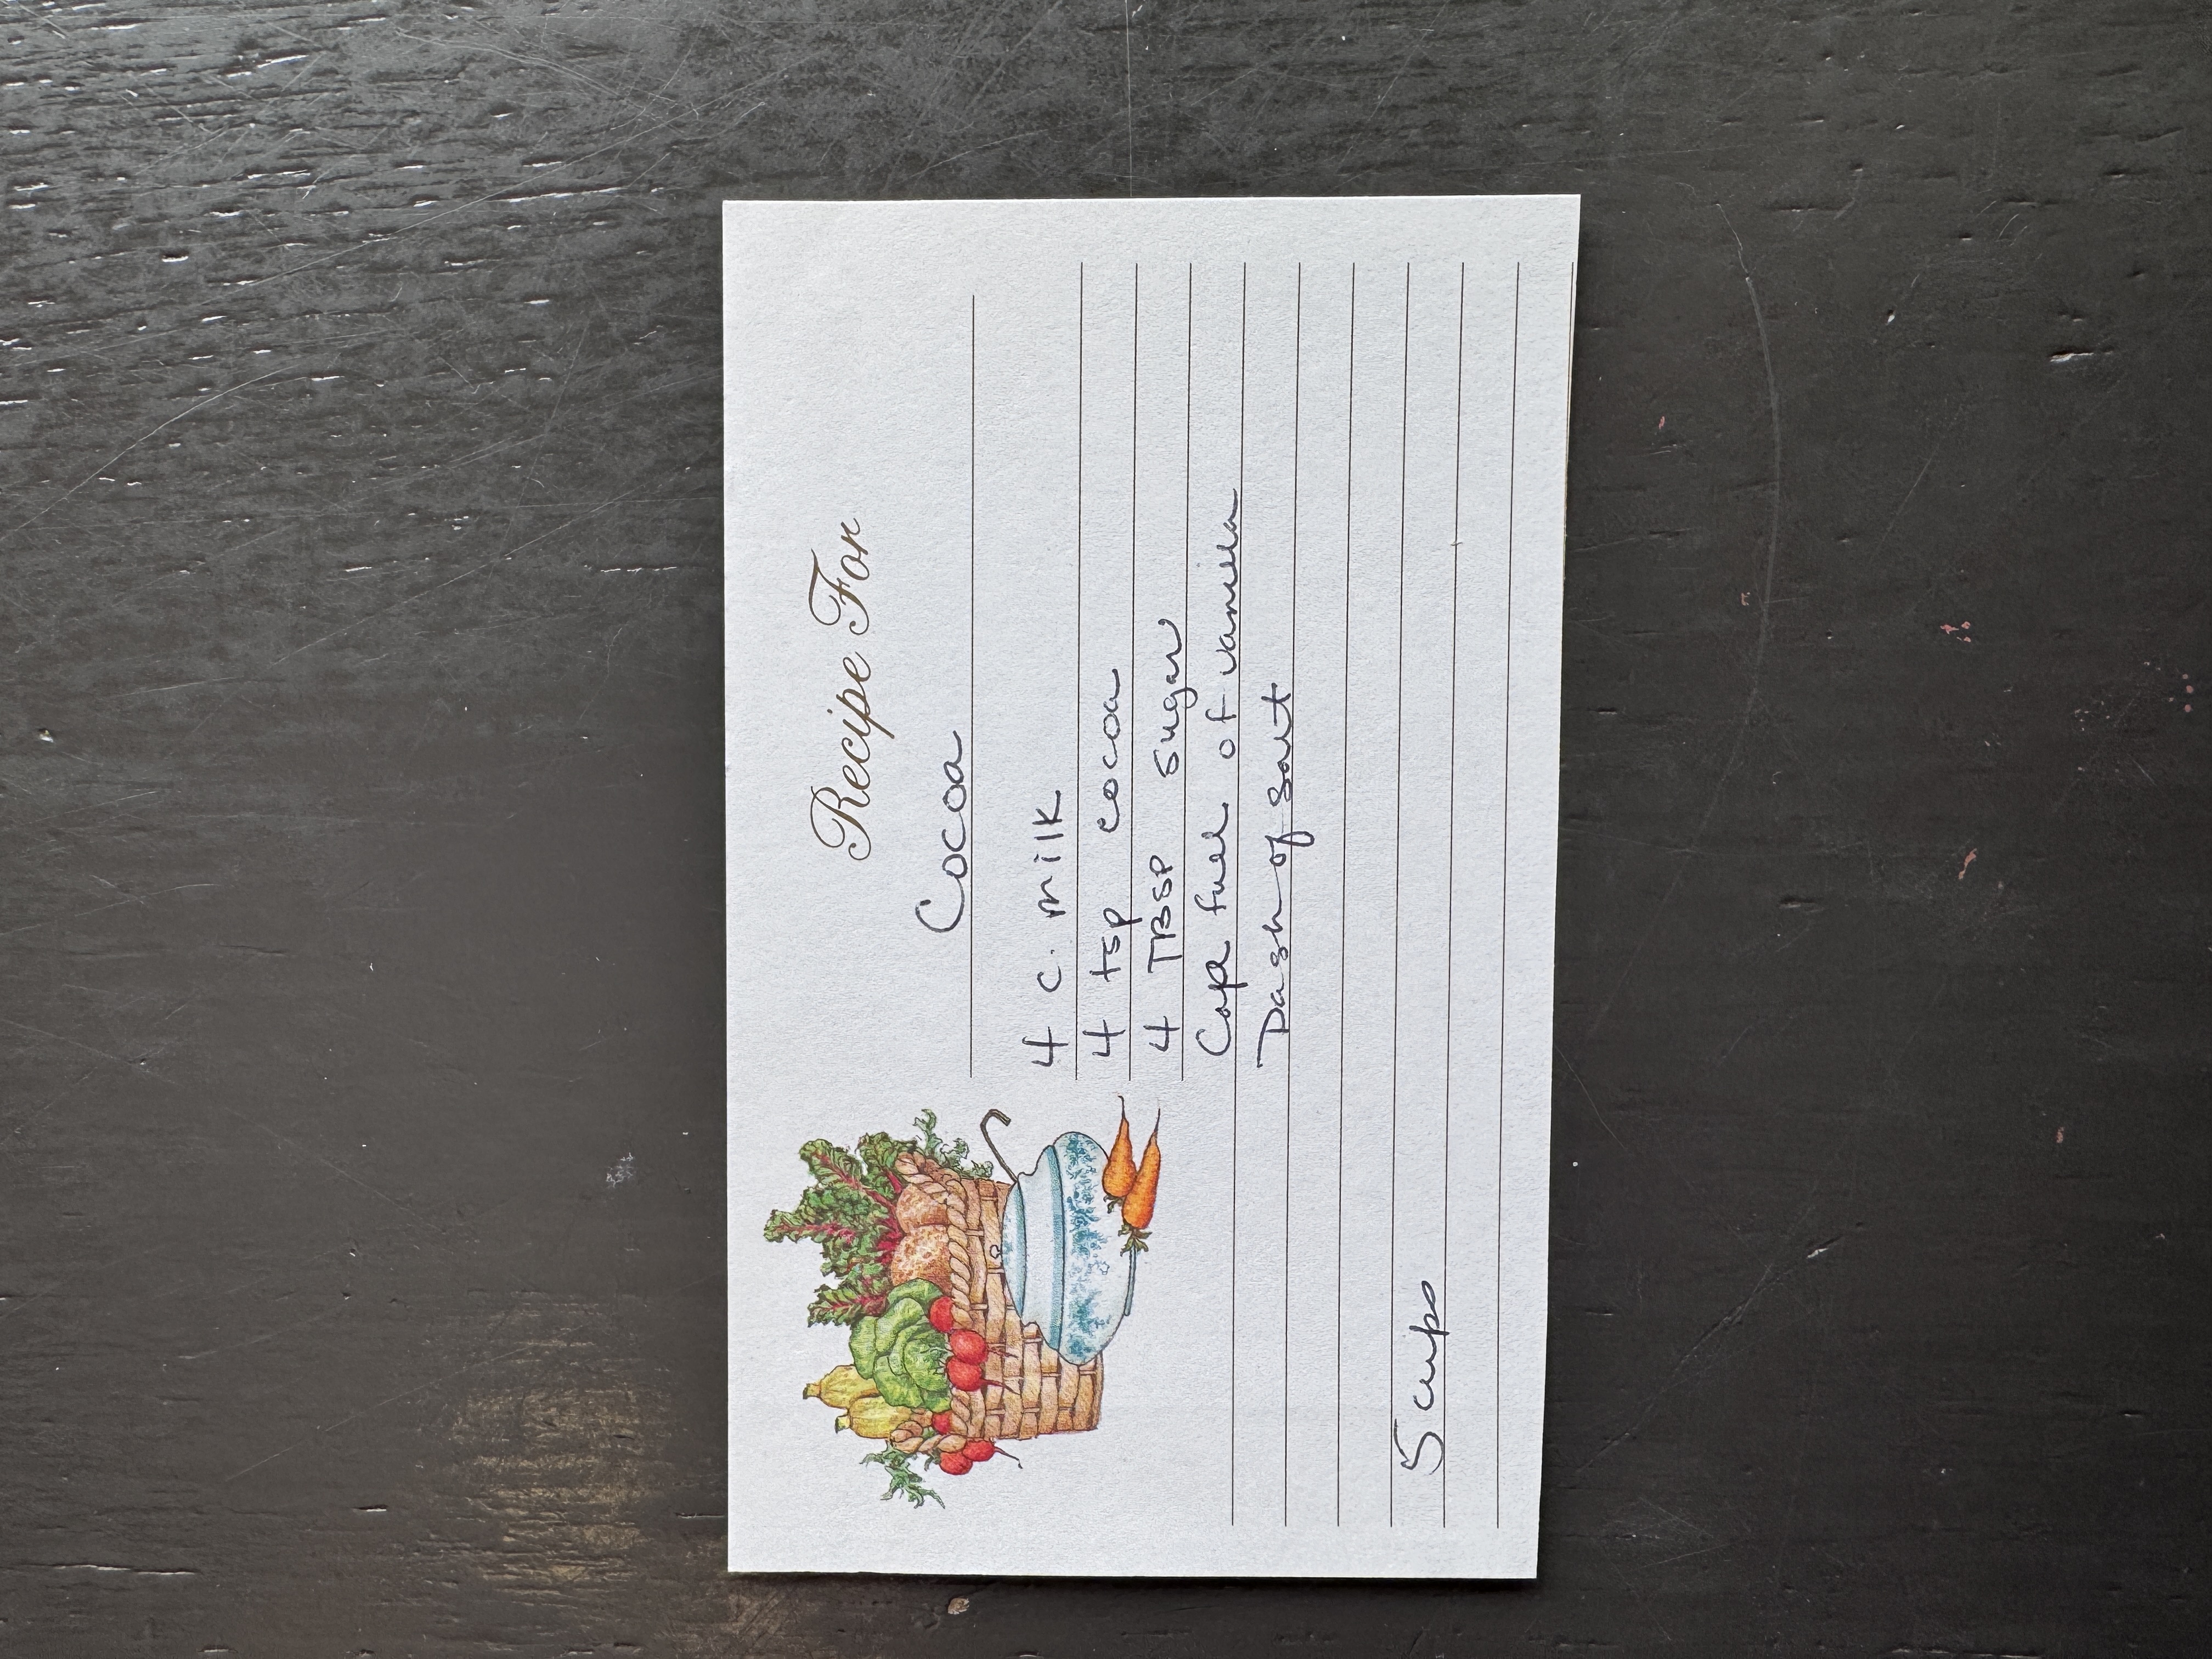 Recipe For
Cocoa
4 c. milk
4 tsp cocoa
4 TBSP sugar
Cap full of vanilla
Dash of salt
5 cups